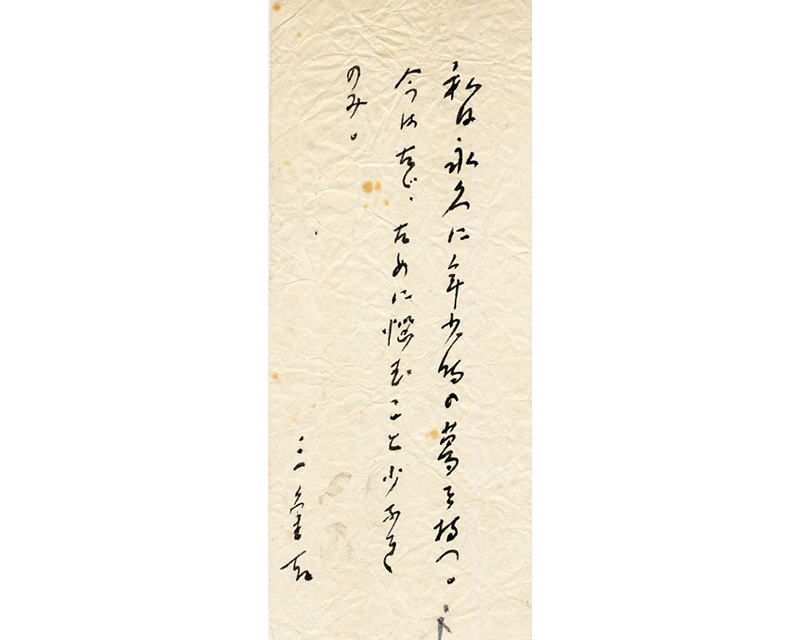 私は永久に年少時の夢を持つ。
今はたゞ、ために悩むこと少なき
のみ。
三重吉